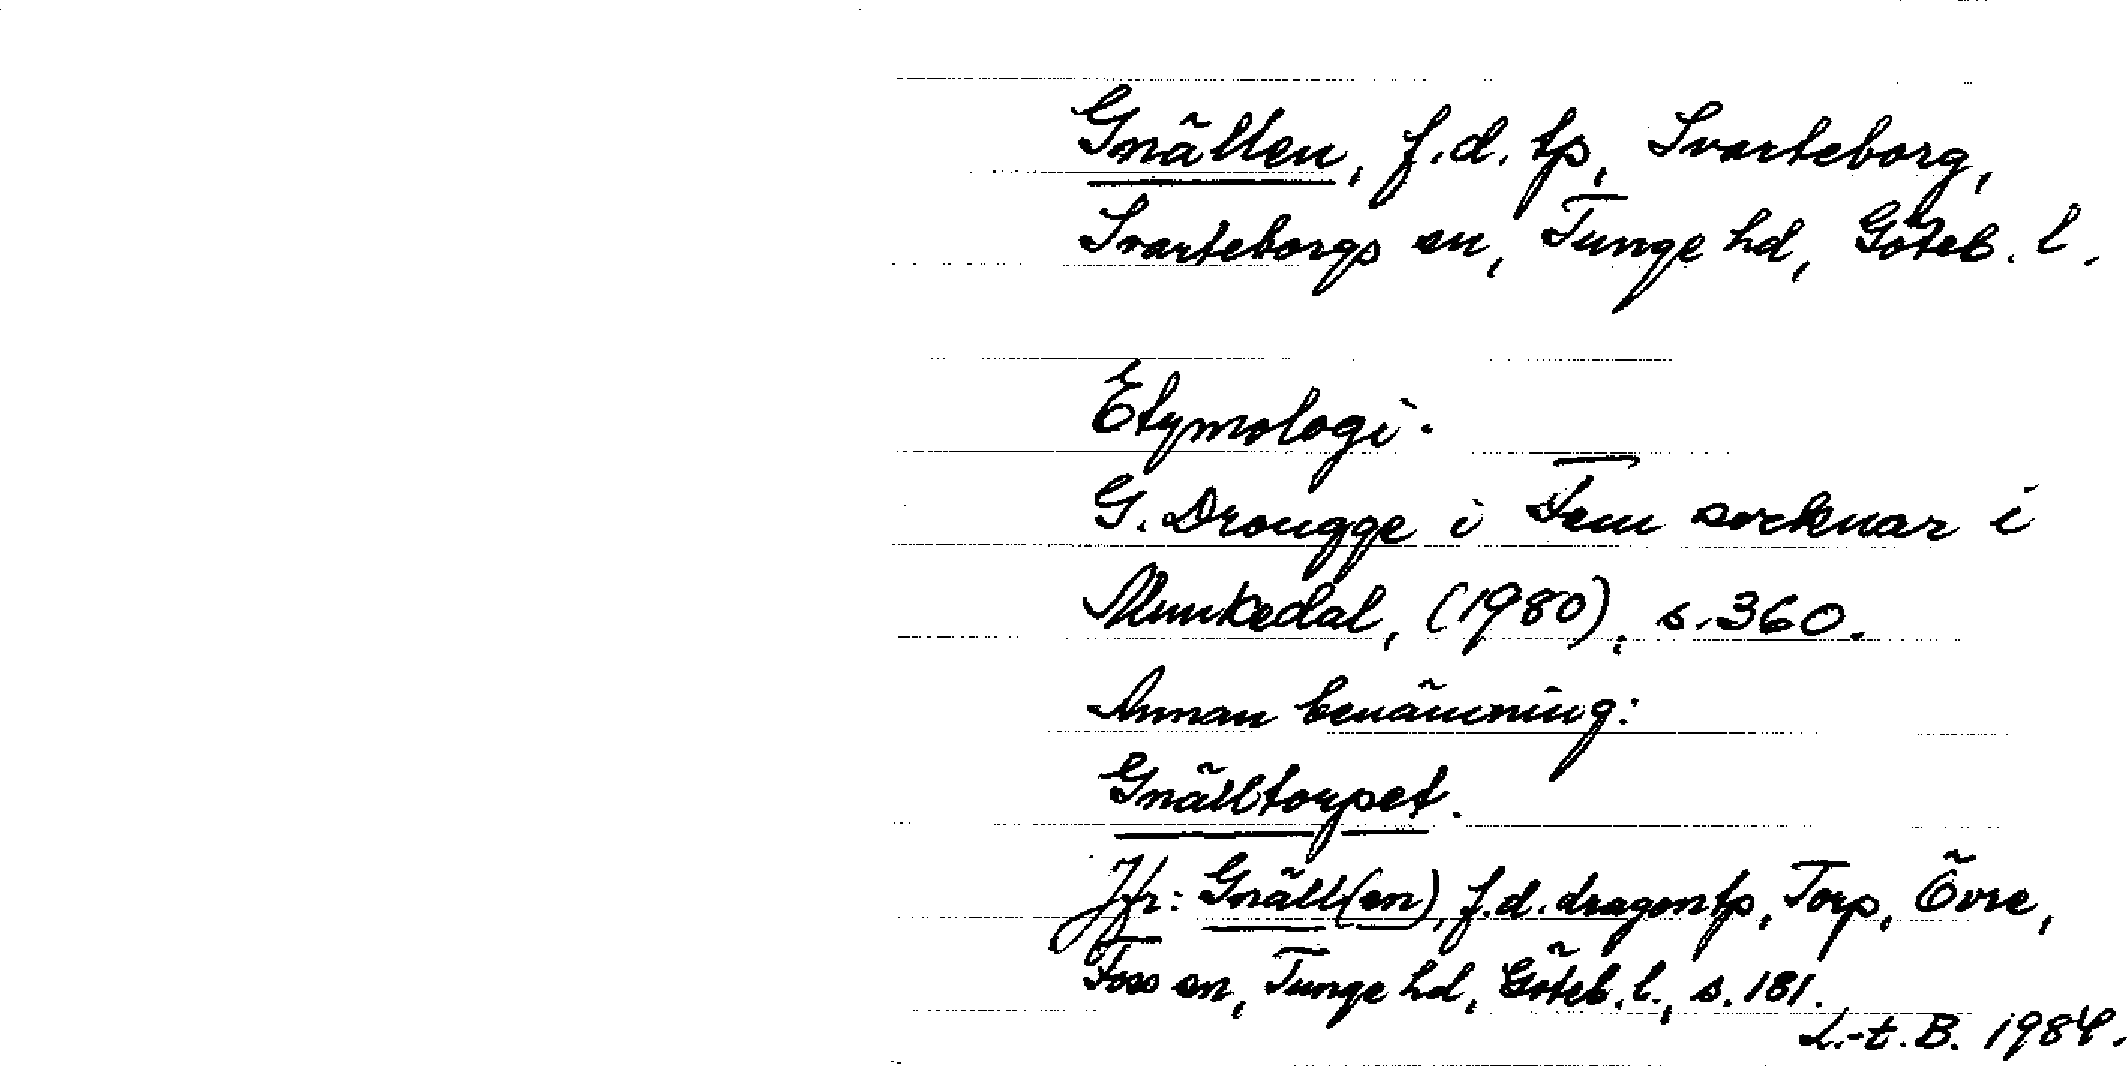 Gnällen, f.d. tp, Svarteborg,
Svarteborgs sn, Tunge hd, Göteb. l.
Etymologi.
G. Drougge i Fem socknar i
Munkedal, (1980), s. 360.
Annan benämning:
Gnälltorpet.
Jfr: Gnäll(en), f.d. dragontp, Torp, Övre,
Foss sn, Tunge hd, Göteb. l., s. 181.
L.-t. B. 1984.